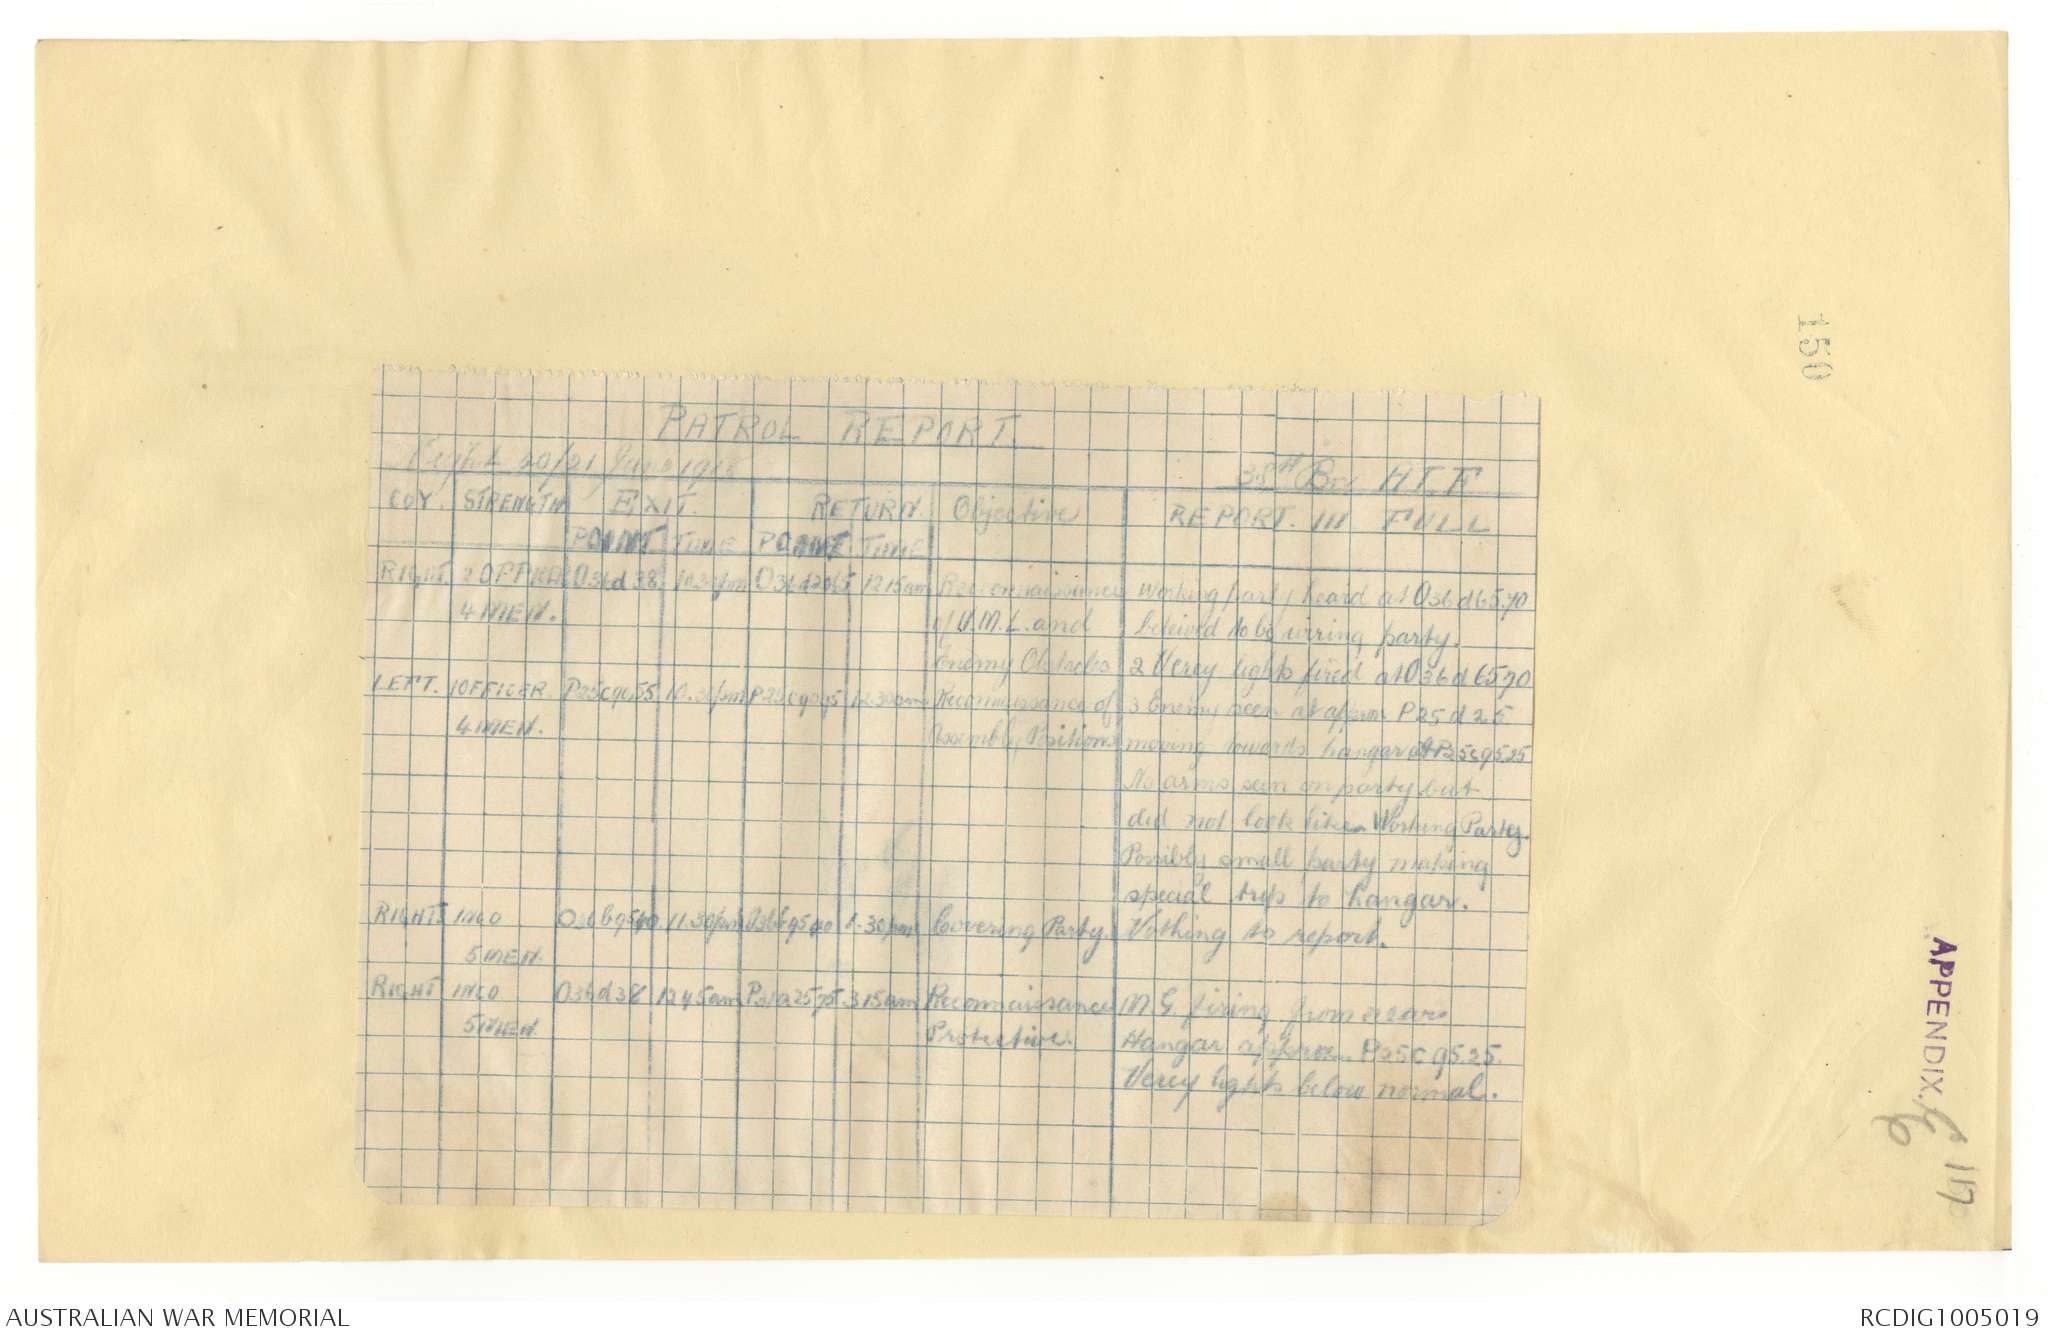 150
PATROL REPORT.
Night 20/21 June 1918
38TH Bn A.I.F
COY. STRENGTH EXIT. RETURN. Objective REPORT. IN FULL
POINT TIME POINT TIME
RIGHT. 2 OFFICER O36d 38 10.30pm 12 15am Reconnaissance Working party heard at O36d65.70
4 MEN. of V.M.L. and beleived to be wiring party.
Enemy Obstacles 2 Verey lights fired at O36d6570
LEFT. 1 OFFICER 10.30pm 12.30am Reconnaissance of 3 Enemy seen at approx P25d 2 5
4 MEN. Assembly Positions moving towards hangar at P25c9525
No arms seen on party but
did not look like Working Party.
Possibly small party making
special trip to hangar.
RIGHT. 1 NCO O36b9540 11.30pm O36b9540 1.30pm Covering Party. Nothing to report.
5 MEN.
RIGHT 1 NCO O36d38 12 45am P31a2575 3 15am Reconnaissance M.G firing from near
5 MEN. Protective. Hangar approx P25c95.25.
Verey lights below normal.
APPENDIX.
117
AUSTRALIAN WAR MEMORIAL
RCDIG1005019